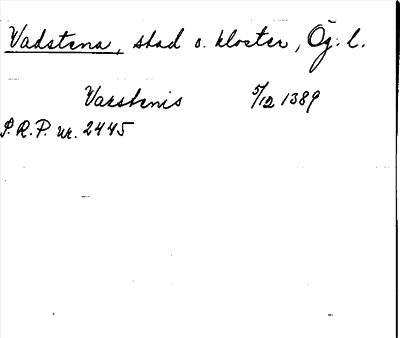 Vadstena, stad o. kloster, Ög. l.
Vaxstenis 5/12 1389
P.R.P. nr. 2445